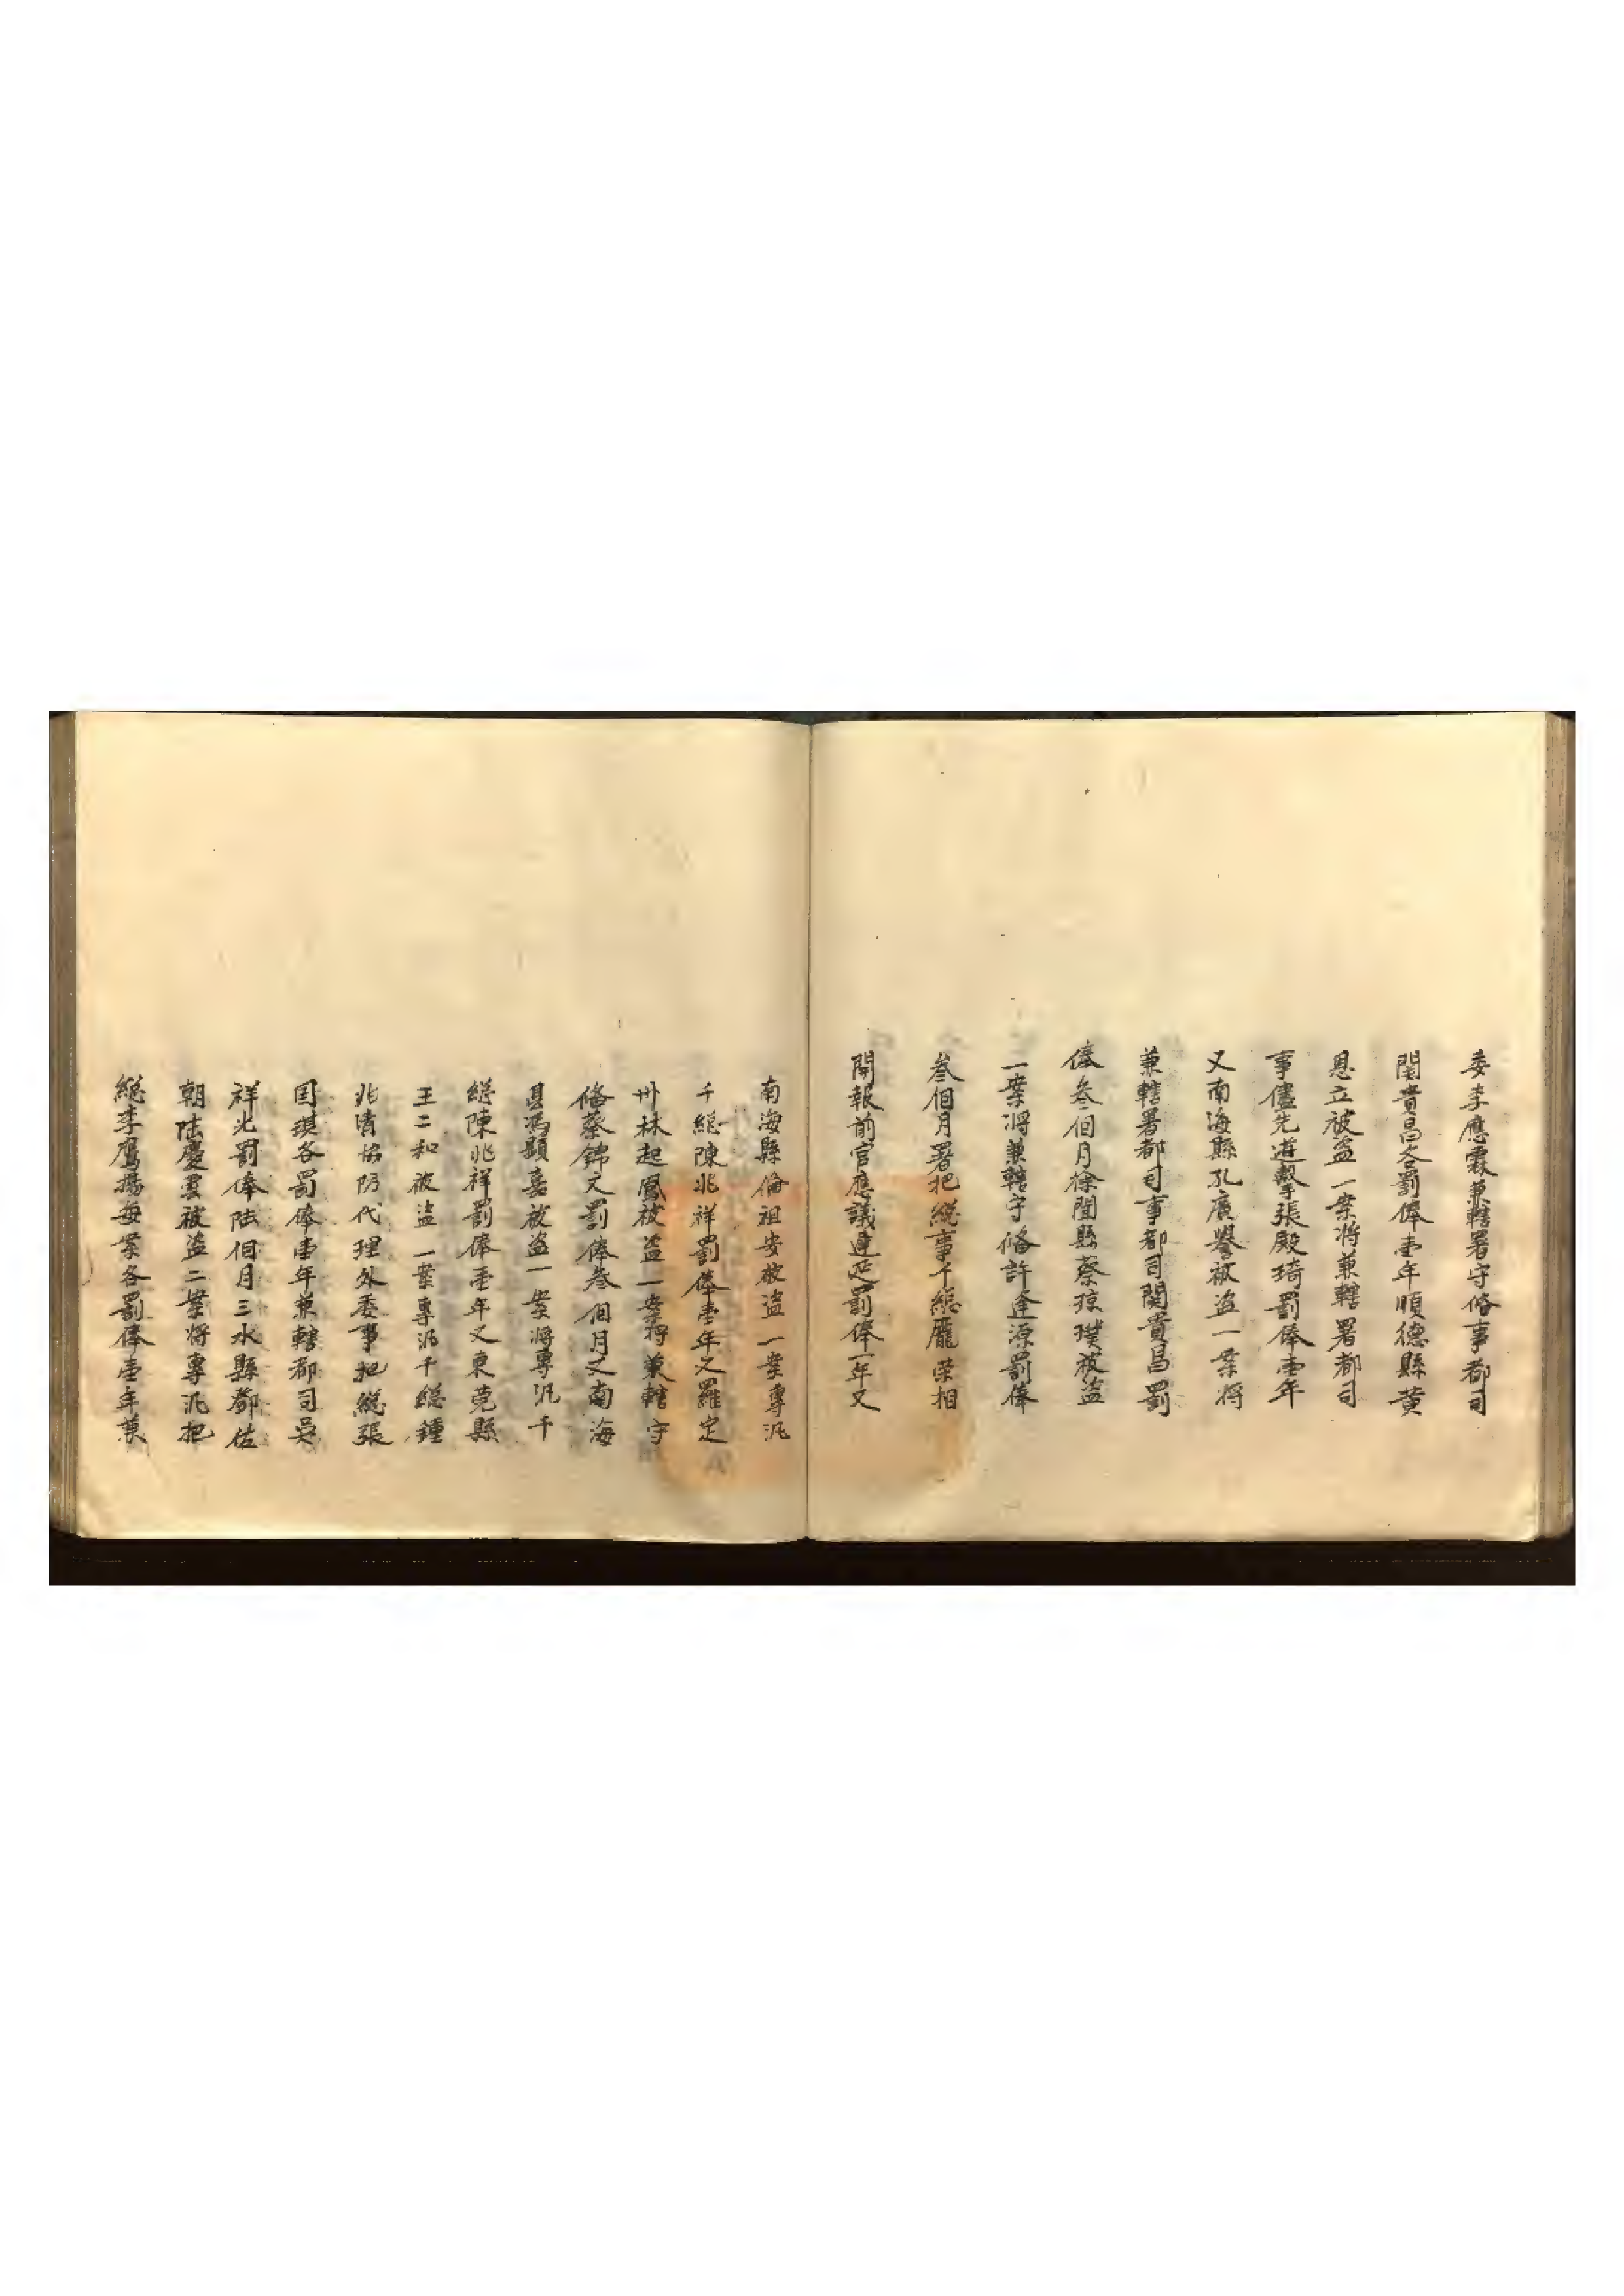 委李應霖兼轄署守俻事都司
関貴昌各罰俸壹年順德縣黄
恩立被盗一案將兼轄署都司
事儘先遊擊張殿琦罰俸壹年
又南海縣孔廣譽被盗一案将
兼轄署都司事都司関貴昌罰
俸叁個月徐聞縣蔡琼璞被盗
一案将兼轄守俻許逢源罰俸
叁個月署把緫事千緫龎荣相
開報前官應議遲延罰俸一年又
南海縣倫祖安被盗一案專汎
千緫陳兆祥罰俸壹年又羅定
州林起鳳被盗一案將兼轄守
俻蔡錦文罰俸叁個月又南海
縣馮顯嘉被盗一案將專汎千
緫陳兆祥罰俸壹年又東莞縣
王二和被盗一案專汎千緫鍾
兆清協防代理外委事把緫張
国琪各罰俸壹年兼轄都司吴
祥光罰俸陆個月三水縣鄧佐
朝陆慶雲被盗二案將專汎把
緫李鷹揚每案各罰俸壹年兼